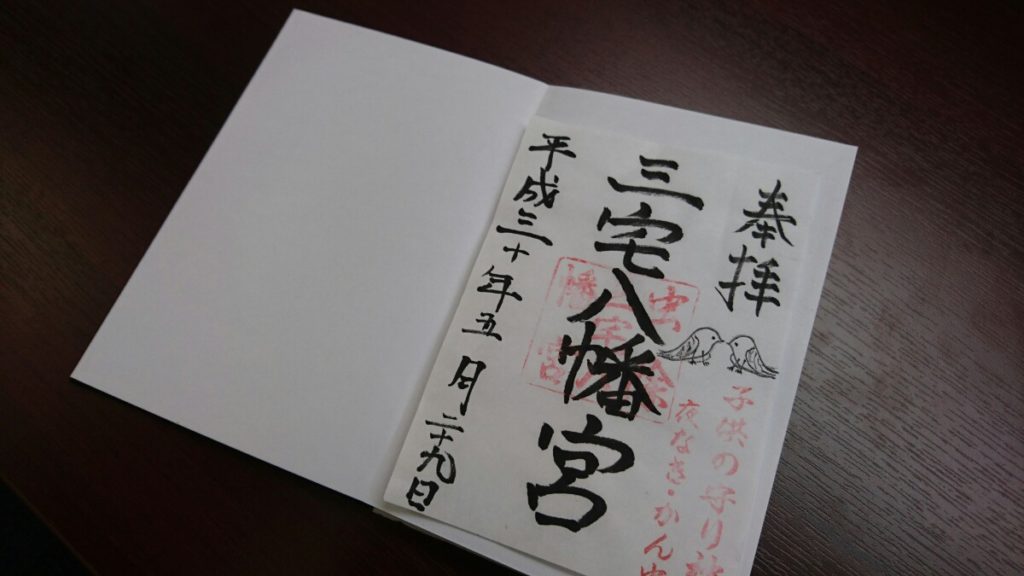 奉拝
子供の守り神
夜なき・かん虫
三宅八幡宮
平成三十年五月二十九日